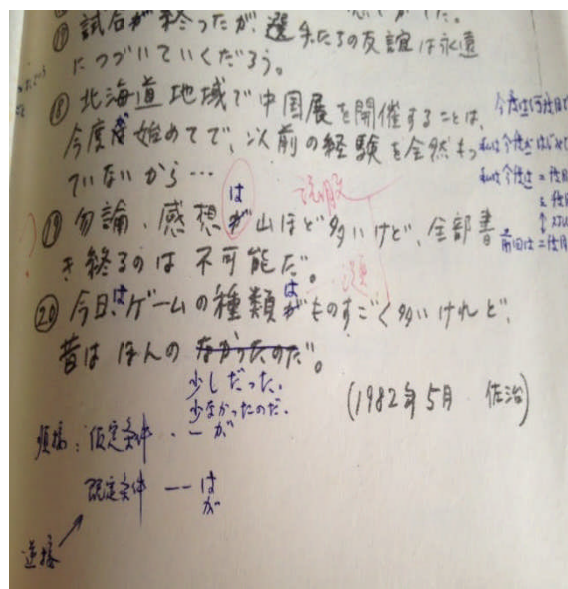 ⑰ 試合が終ったが、選手たちの友誼は永遠
につづいていくだろう。
⑱ 北海道地域で中国展を開催することは、
今度が始めてで、以前の経験を全然もっ
ていないから…
は
説明文
⑲ 勿論、感想が山ほど多いけど、全部書
き終るのは不可能だ。
題
は
は
⑳ 今日、ゲームの種類がものすごく多いけれど、
昔はほんのなかったのだ。
少しだった.
少なかったのだ.
(1982年5月 佐治)
順接:仮定条件 ・ー が
既定条件 —— は
が
逆接